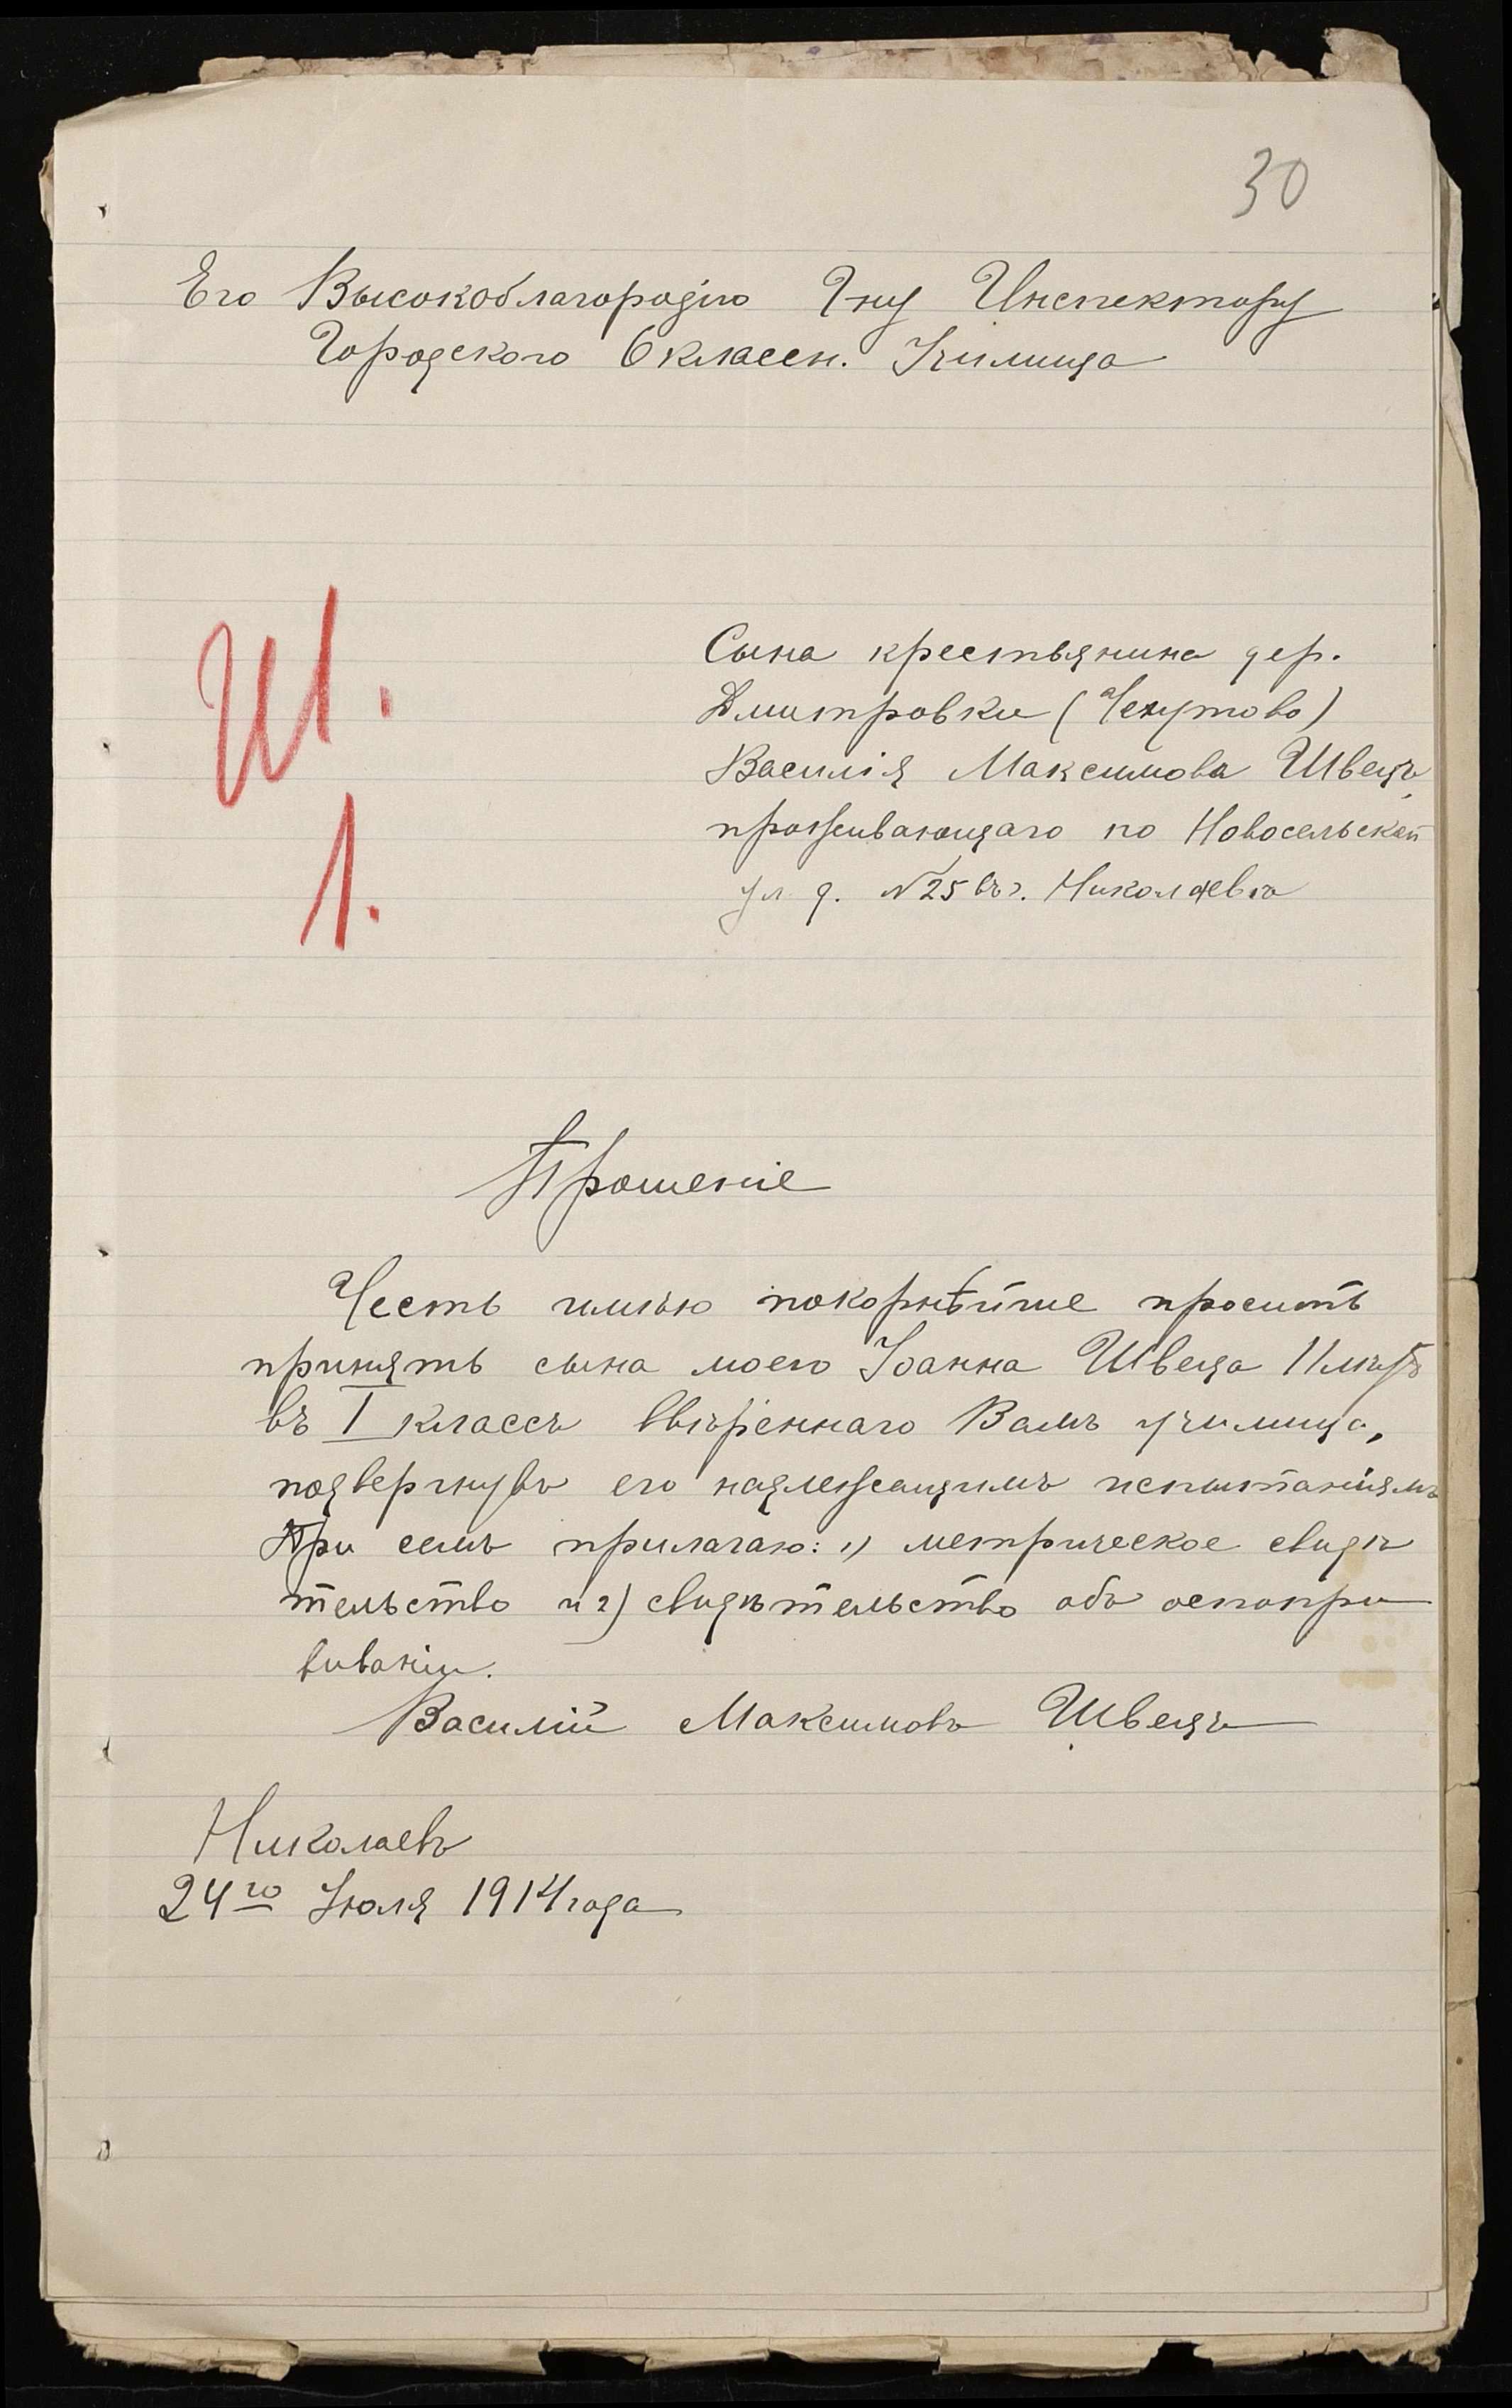 30
Его Высокоблагородію Гну Инспектору
Городского 6 классн. Училища
Сына крестьянина дер.
Дмитровки (
Василія Максимова Швецъ,
проживающаго по Новосельской
ул. д. № 25 въ г. Николаевѣ
Ш.
1.
Прошеніе
Честь имѣю покорнѣйше просить
принять сына моего Іоанна Швеца 11 лѣтъ
въ I классъ ввѣреннаго Вамъ училища,
подвергнувъ его надлежащимъ испытаніямъ
При семъ прилагаю: 1) метрическое свидѣ
тельство и 2) свидѣтельство объ оспопри
виваніи.
Василій Максимовъ Швецъ
Николаевъ
24го Іюля 1914 года